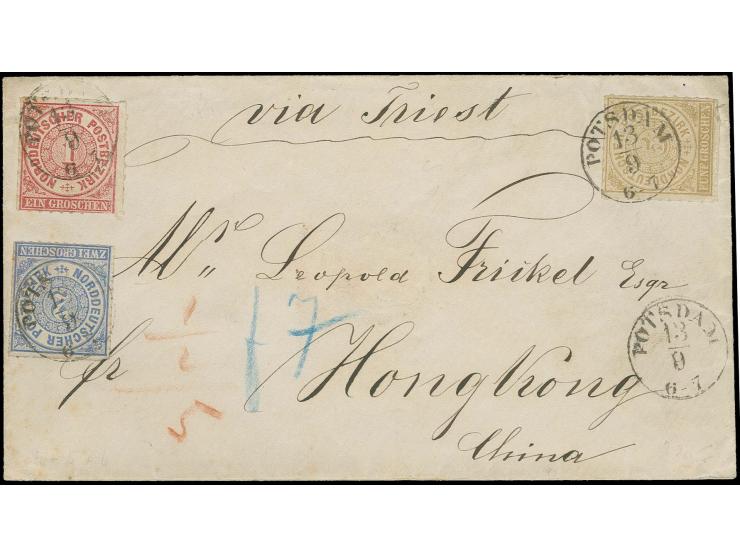 via Triest
NORDDEUTSCHER POSTBEZIRK
1
EIN GROSCHEN
POTSDAM
13
9
6-7
ZWEI GROSCHEN
NORDDEUTSCHER
Mr Leopold Frickel Esqr
fr
Hongkong
China
7
POTSDAM
13
9
6-7